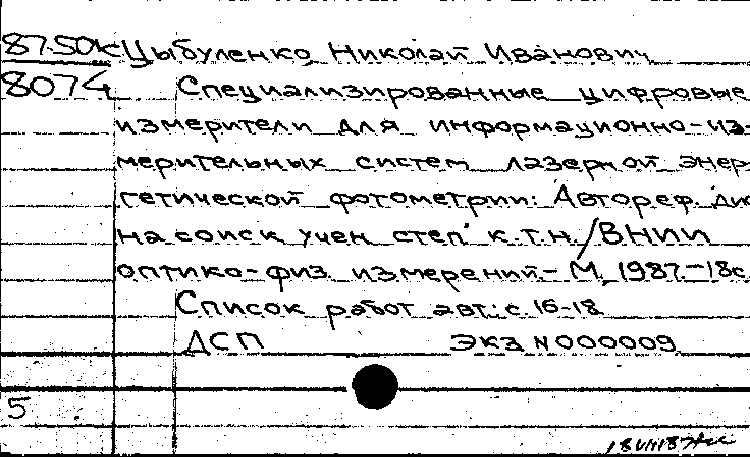 87-50к Цыбуленко Николай Иванович
8074 Специализированные цифровые
измерители для информационно-из-
мерительных систем лазерной энер
гетической фотометрии: Автореф. дис
на соиск учен степ к.т.н./ВНИИ
оптико-физ измерений.- М, 1987.-18с.
Список работ авт.: с. 16-18
ДСП Экз N 000009
5